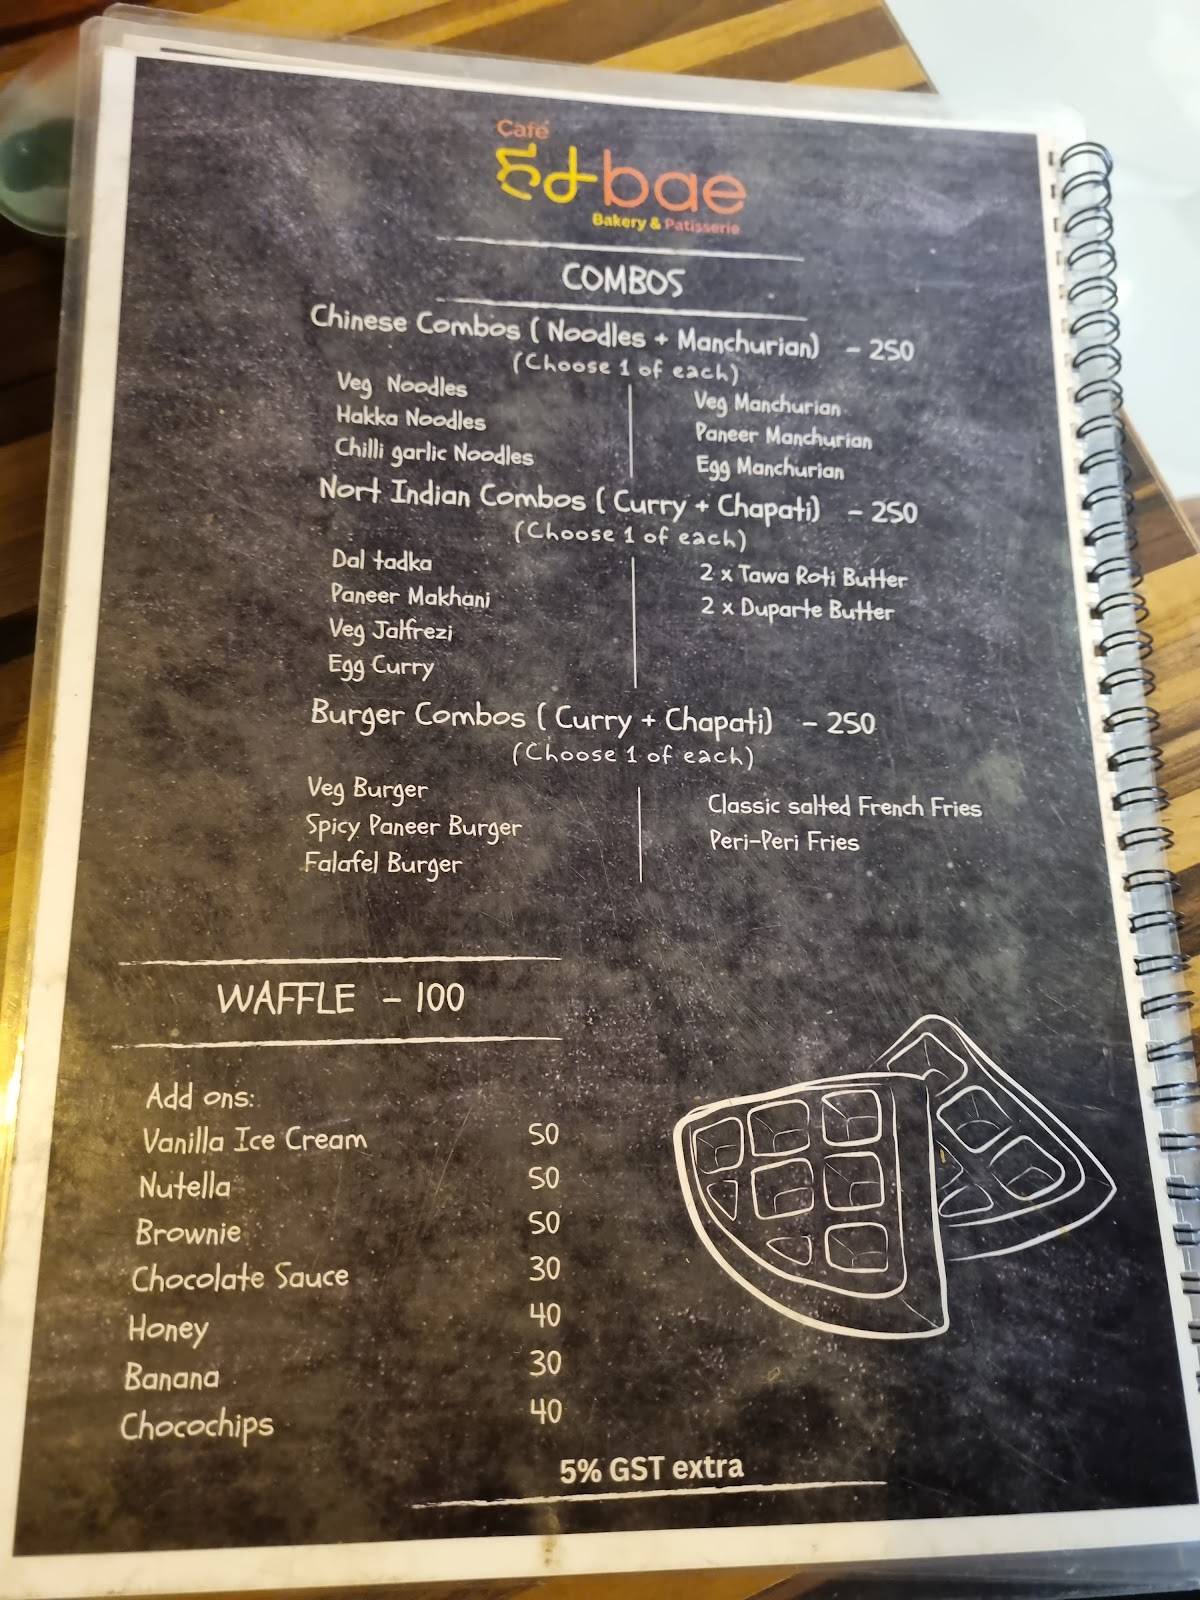 Café
bae
Bakery & Patisserie
COMBOS
Chinese Combos ( Noodles + Manchurian) - 250
(Choose 1 of each)
Veg Noodles
Hakka Noodles
Chilli garlic Noodles
Veg Manchurian
Paneer Manchurian
Egg Manchurian
Nort Indian Combos ( Curry + Chapati) - 250
(Choose 1 of each)
Dal tadka
Paneer Makhani
Veg Jalfrezi
Egg Curry
2 x Tawa Roti Butter
2 x Duparte Butter
Burger Combos ( Curry + Chapati) - 250
(Choose 1 of each)
Veg Burger
Spicy Paneer Burger
Falafel Burger
Classic salted French Fries
Peri-Peri Fries
WAFFLE - 100
Add ons:
Vanilla Ice Cream 50
Nutella 50
Brownie 50
Chocolate Sauce 30
Honey 40
Banana 30
Chocochips 40
5% GST extra